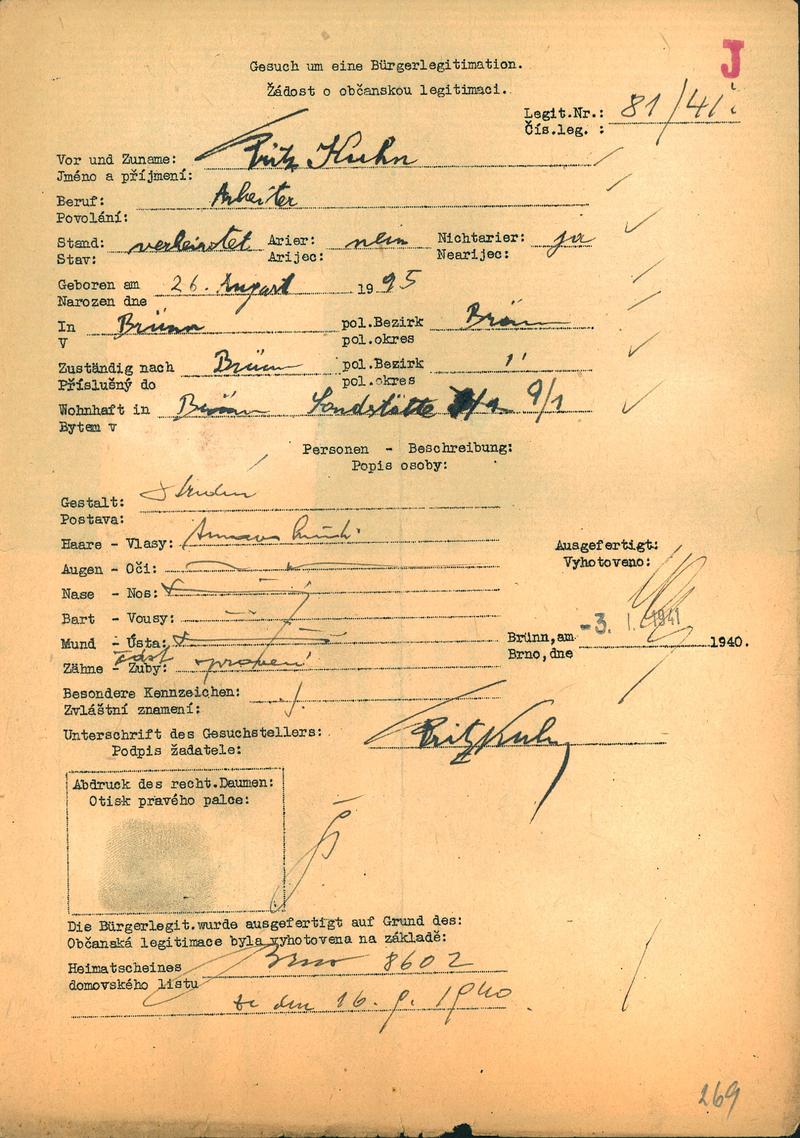 J
Gesuch um eine Bürgerlegitimation.
Žádost o občanskou legitimaci.
Legit.Nr.: 81/41
Čís.leg. :
Vor und Zuname: Fritz Kuhn
Jméno a příjmení:
Beruf: Arbeiter
Povolání:
Stand: verheiratet Arier: nein Nichtarier: ja
Stav: Arijec: Nearijec:
Geboren am 26. August 1995
Narozen dne
In Brünn pol.Bezirk Brünn
V pol.okres
Zuständig nach Brünn pol.Bezirk "
Příslušný do pol.okres
Wohnhaft in Brünn 9/1
Bytem v
Personen - Beschreibung:
Popis osoby:
Gestalt:
Postava:
Haare - Vlasy:
Ausgefertigt:
Augen - Oči:
Vyhotoveno:
Nase - Nos:
Bart - Vousy:
-3. I. 1941
Mund - Ústa:
Brünn,am 1940.
Brno,dne
Zähne - Zuby: část
Besondere Kennzeichen:
Zvláštní znamení:
Unterschrift des Gesuchstellers: Fritz Kuhn
Podpis žadatele:
Abdruck des recht.Daumen:
Otisk pravého palce:
Die Bürgerlegit.wurde ausgefertigt auf Grund des:
Občanská legitimace byla vyhotovena na základě:
Heimatscheines Brno 8602
domovského listu
ze dne 16. 9. 1940
269